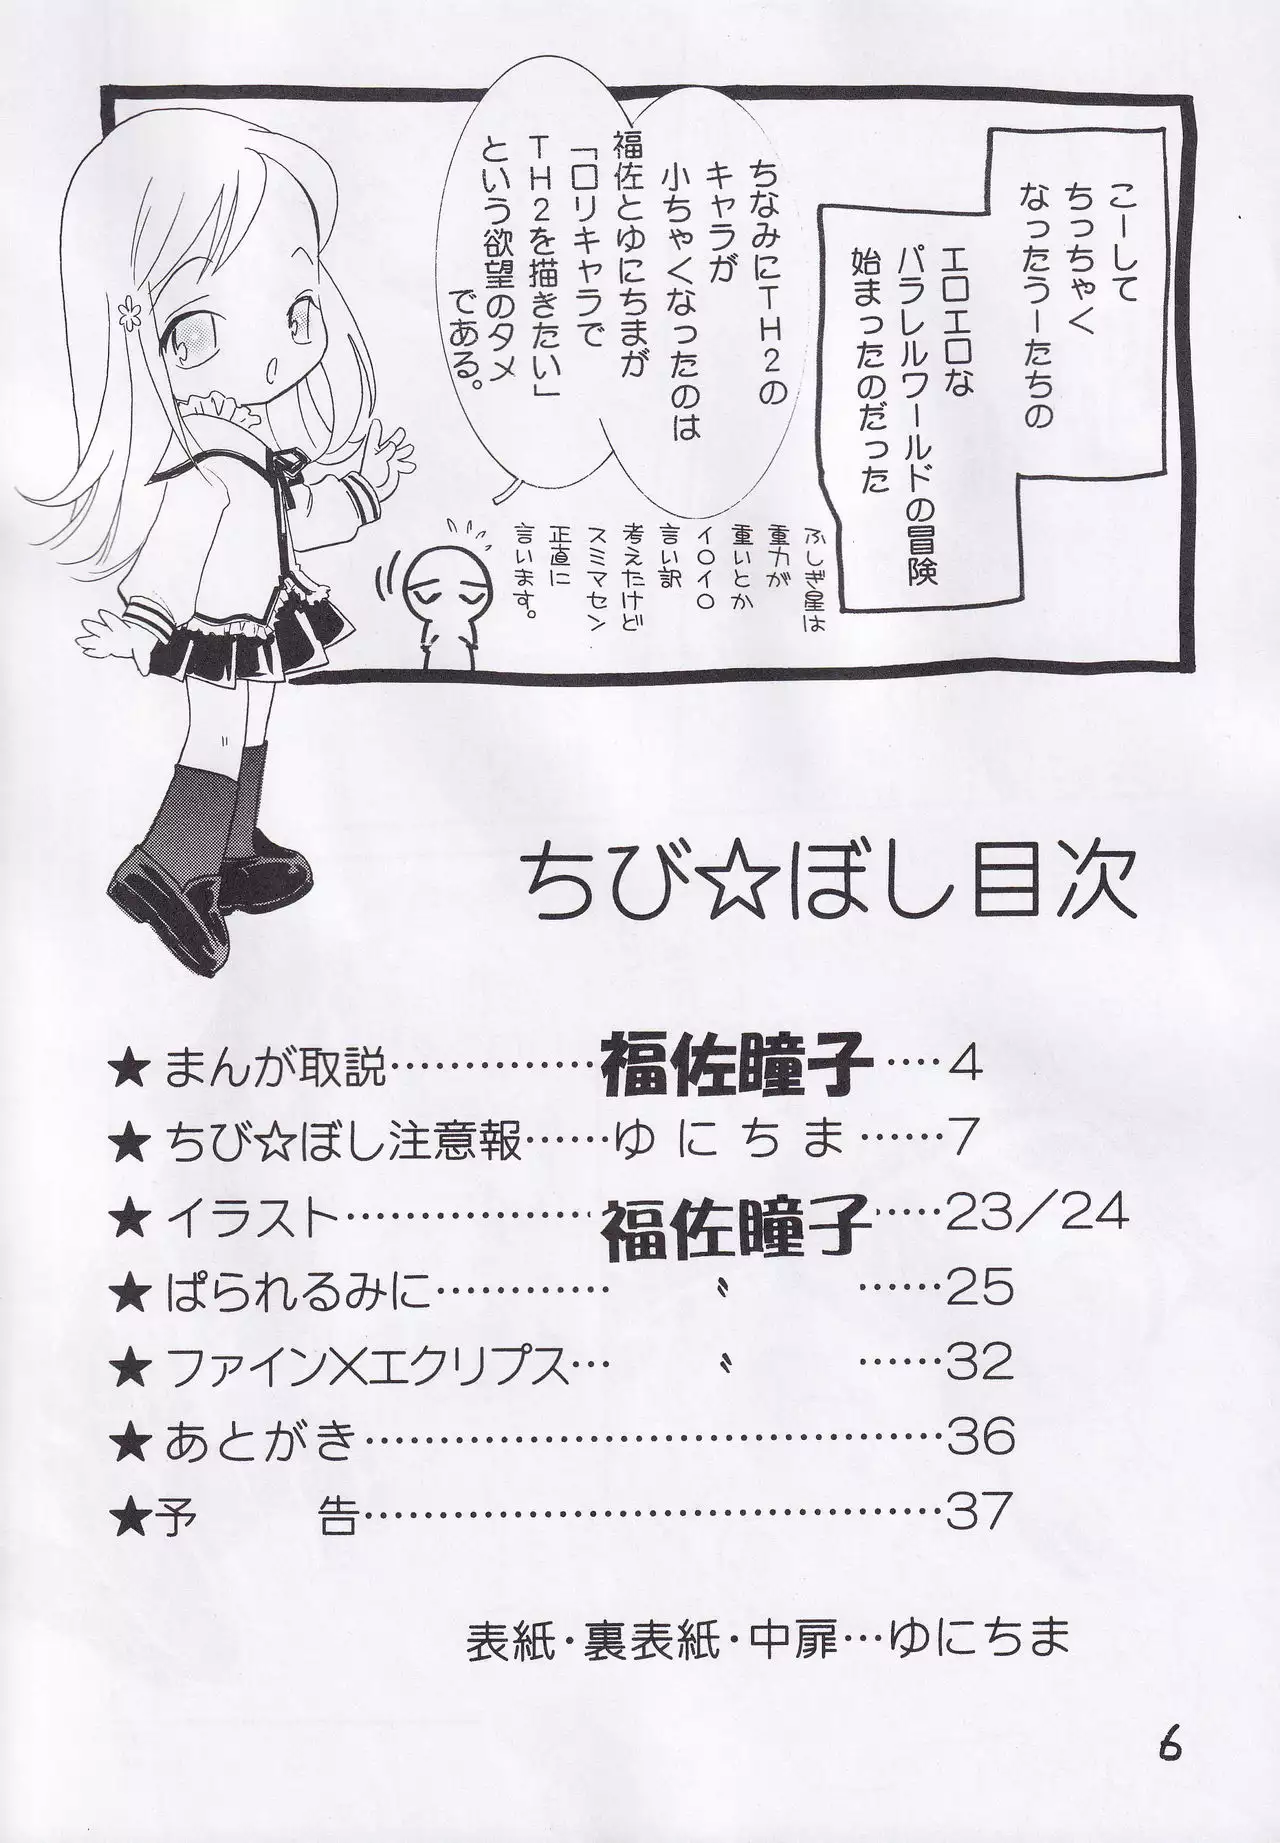 こーして
ちっちゃく
なったうーたちの
エロエロな
パラレルワールドの冒険
始まったのだった
ちなみにTH2の
キャラが
小ちゃくなったのは
福佐とゆにちまが
「ロリキャラで
TH2を描きたい」
という欲望のタメ
である。
ふしぎ星は
重力が
重いとか
イロイロ
言い訳
考えたけど
スミマセン
正直に
言います。
ちび☆ぼし目次
★まんが取説…………福佐瞳子……4
★ちび☆ぼし注意報……ゆにちま……7
★イラスト…………………福佐瞳子……23/24
★ぱられるみに…………〃……25
★ファイン×エクリプス…〃……32
★あとがき……………………………………36
★予 告……………………………………37
表紙・裏表紙・中扉…ゆにちま
6